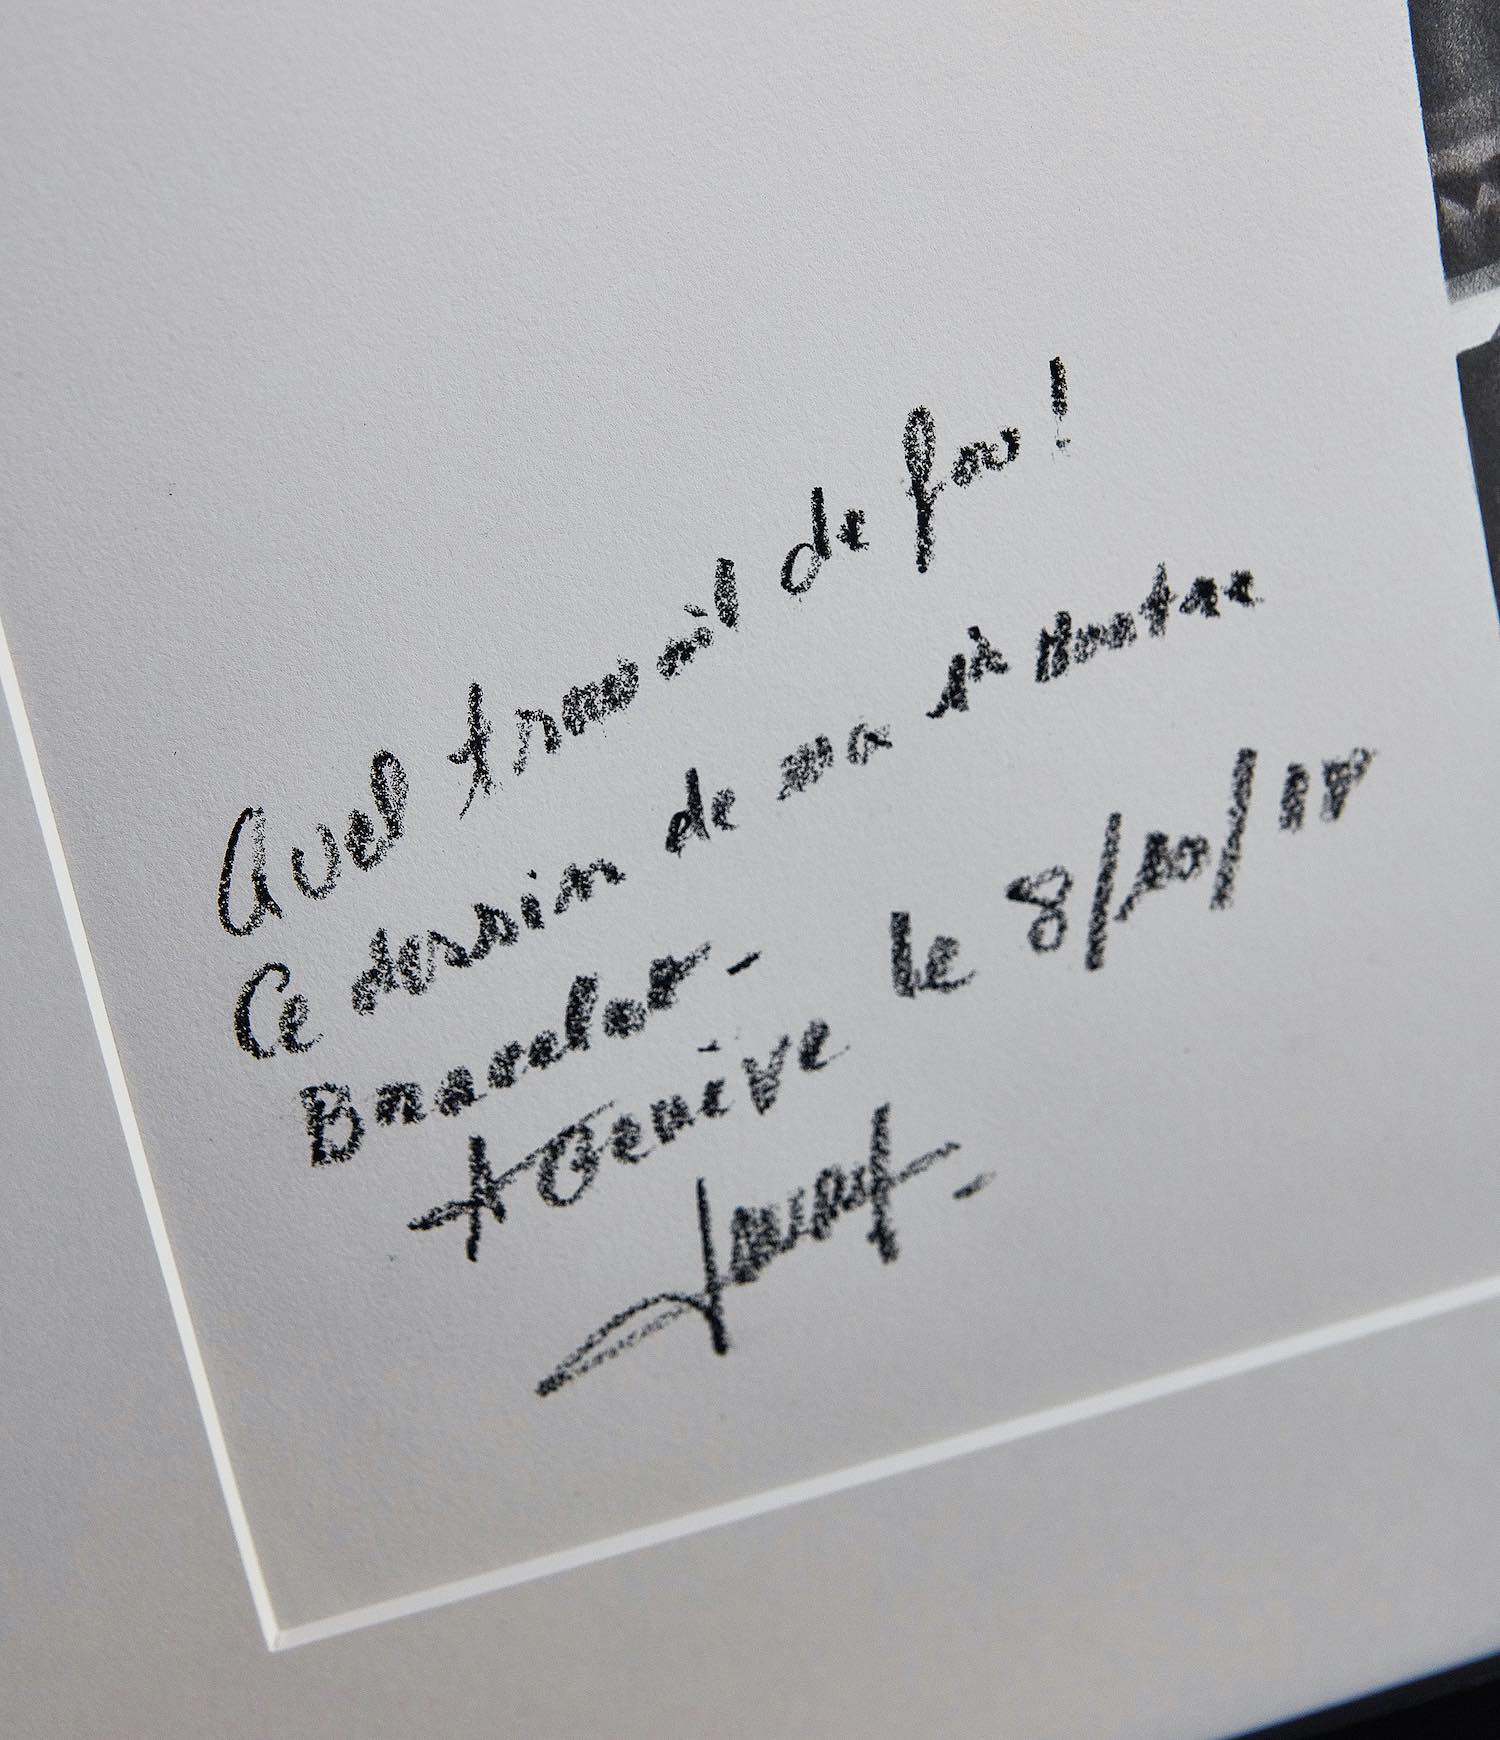 Quel travail de fou!
Ce dessin de ma 1è montre
Bracelet -
A Genève le 8/10/18